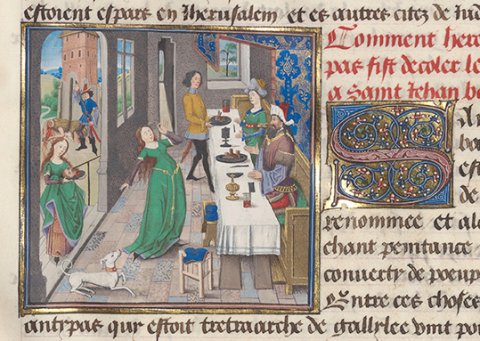 estoient espars en Jherusalem / et es autres citez de Jud
Comment hero
pas fist decoler le
a saint Jehan ba
est
renommee et al
chant penitance
convertz de poeup
Entre ces choses
antypas qui estoit tretrarche de gallylee vint po